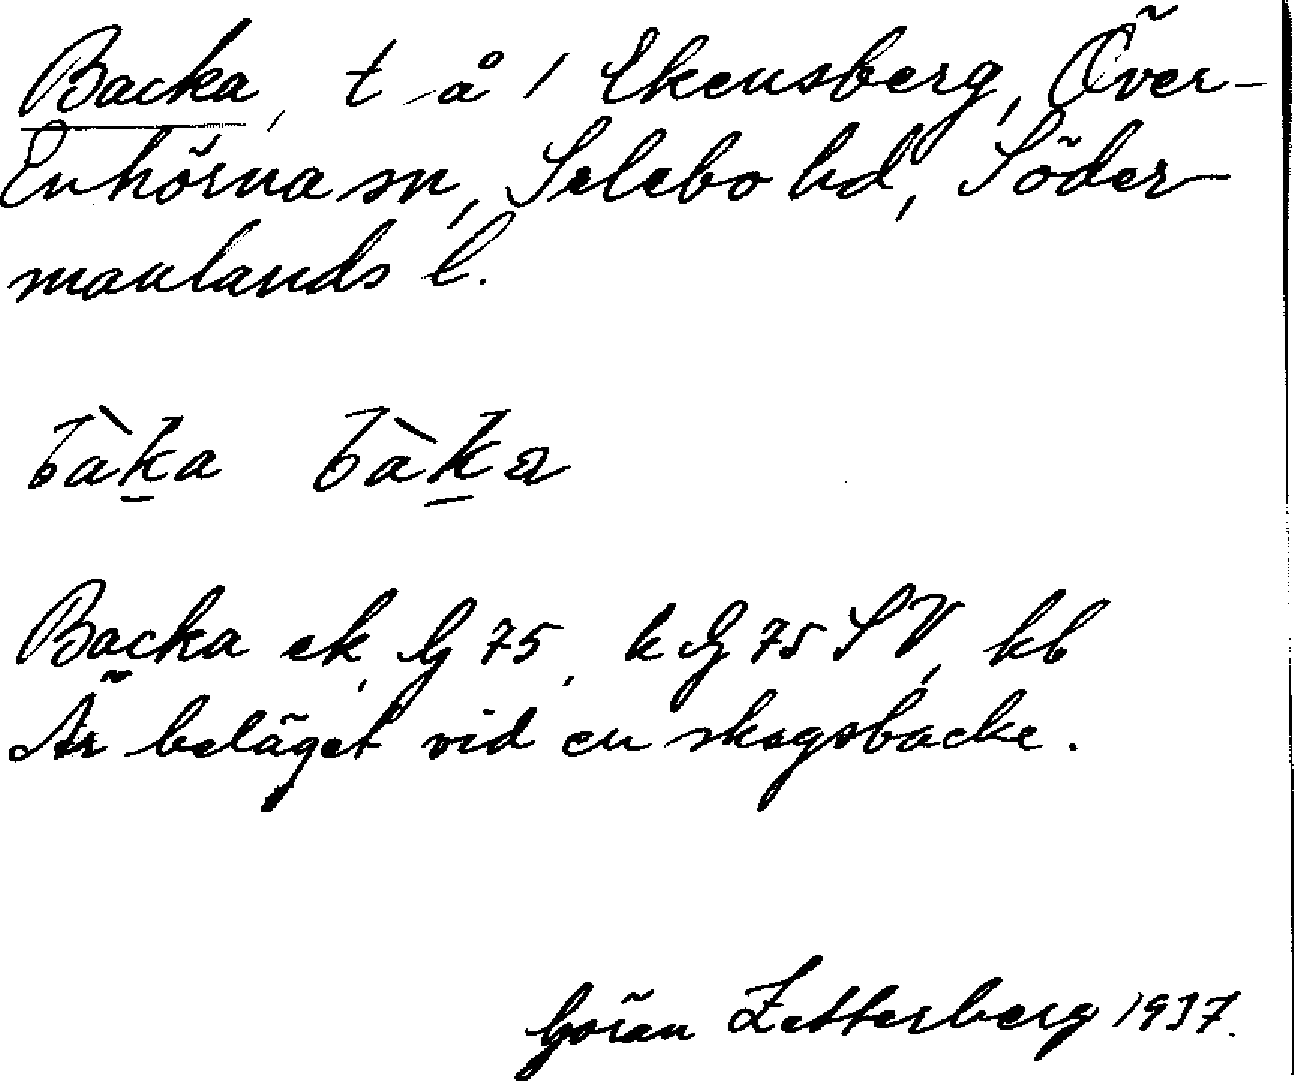 Backa, t å 1 Ekensberg, Över-
Enhörna sn, Selebo hd, Söder
manlands l.
bàka bàka
Backa ek, G 75, k G 75 SV, kb
Är beläget vid en skogsbacke.
Göran Zetterberg 1937.